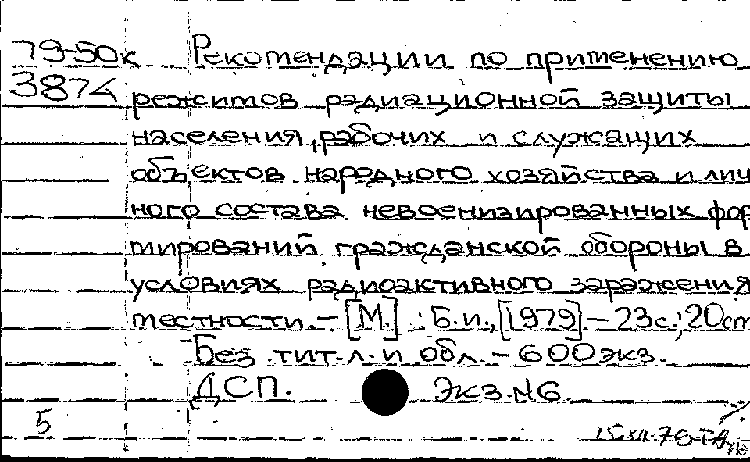 79-50к Рекомендации по применению
3874 режимов радиационной защиты
населения, рабочих и служащих
объектов народного хозяйства и лич
ного состава невоенизированных фор
мирований гражданской обороны в
условиях радиоактивного заражения
местности. - [М.] : Б.и., [1979]. - 23с.; 20см
Без тит. л. и обл. - 600экз.
ДСП. Экз. №6.
5